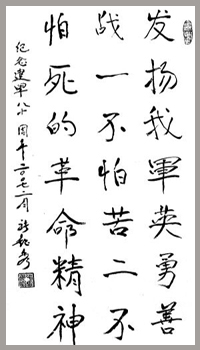 发扬我軍英勇善
战一不怕苦二不
怕死的革命精神
纪念建軍八十周年